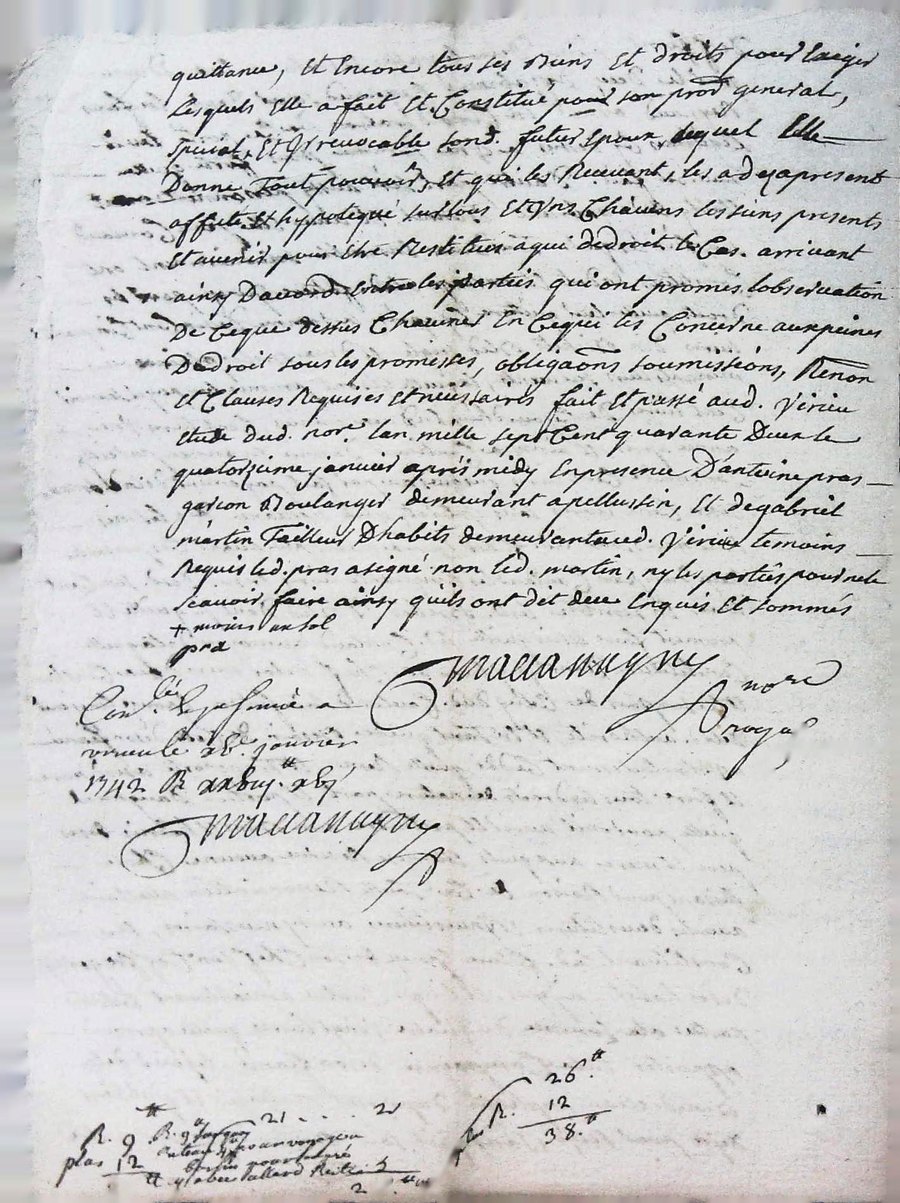 quittance, Et Encore tous ses Biens Et droits pour Exiger
Lesquels Elle a fait Et Constitué pour son prod general,
special, Et Irrevocable sond. futur Epoux, auquel Elle
Donne Tout pouvoir, Et que les Recevant, les a deja present
affecté Et hypotequé sur tous Et Uns Chacuns les siens presents
Et avenir pour Etre Restitues a qui de droit le Cas. arrivant
ainsy Daccord Entre les parties qui ont promis lobservation
De Ceque dessus Chacunes En Cequi les Concerne aux peines
De droit sous les promesses, obligaons soumissions, Renon
Et Clauses Requises Et necessaires fait Et passé aud. Virieu
Etude dud. nore. lan mille sept Cent quarante Deux le
quatorzieme janvier apres midy En presence D'antoine pras
garcon Boulanger demeurant a pellussin, Et de gabriel
martin Tailleur Dhabits demeurant aud. Virieu temoins
Requis led. pras a signé non led. martin, ny les parties pour ne le
scavoir faire ainsy quils ont dit de ce Enquis Et sommés
+ moins un sol
pra
nore
royal
Conlé.
virieu le janvier
1742 R
R. 9 21 . . . 2
plus 12
R. 26.
12
38.